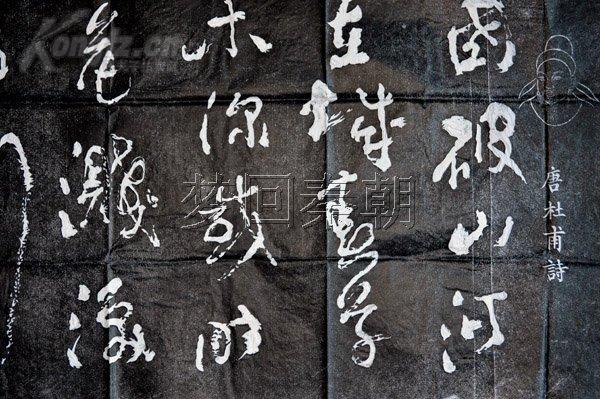 唐杜甫詩
国破山河
在城春草
木深感时
花濺淚
梦回秦朝